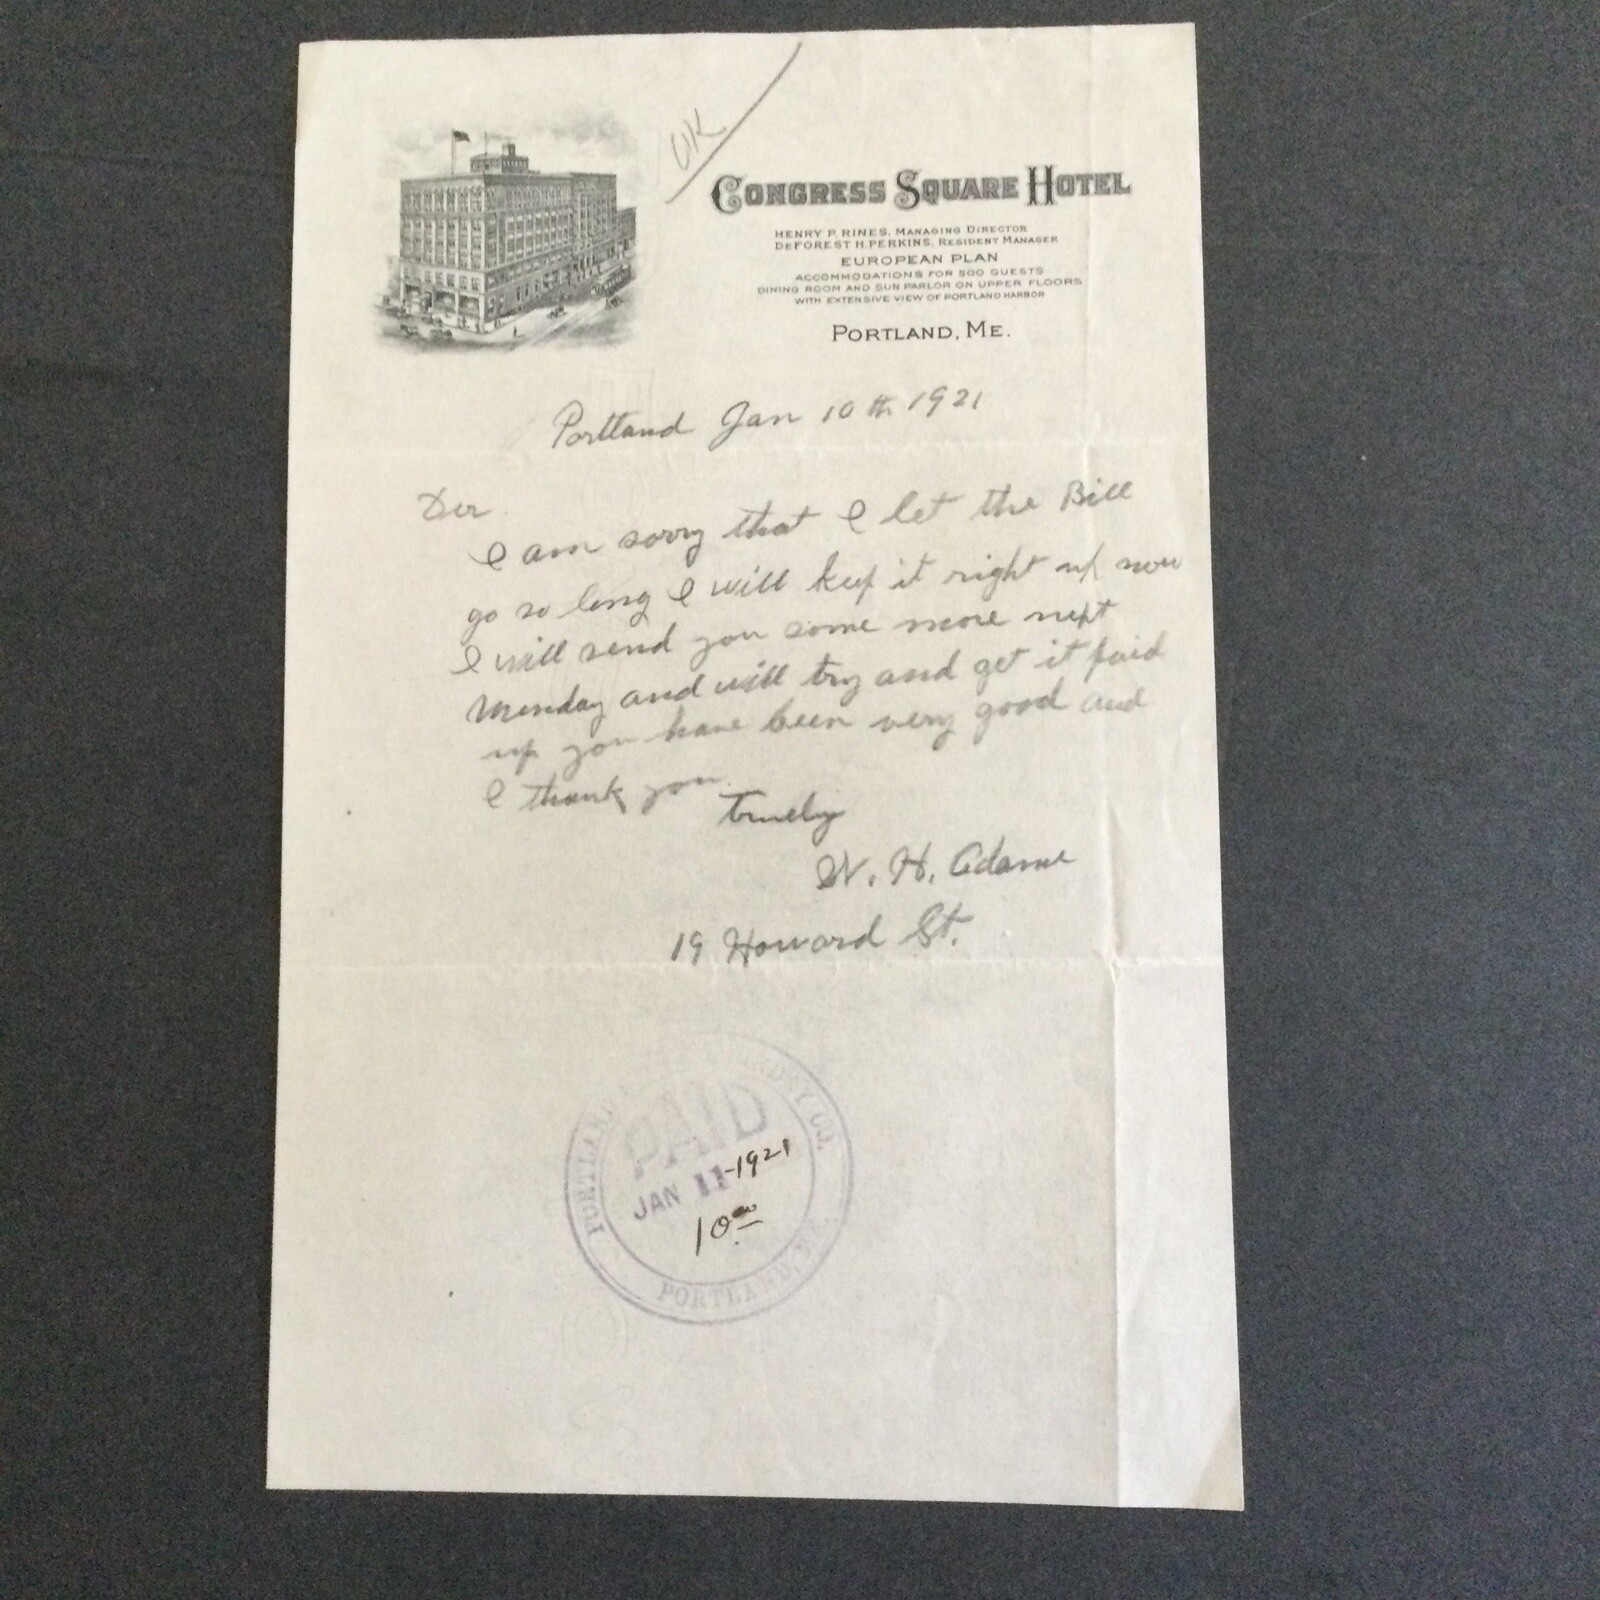 OK
CONGRESS SQUARE HOTEL
HENRY P. RINES, MANAGING DIRECTOR
DEFOREST H. PERKINS, RESIDENT MANAGER
EUROPEAN PLAN
ACCOMMODATIONS FOR 500 GUESTS
DINING ROOM AND SUN PARLOR ON UPPER FLOORS
WITH EXTENSIVE VIEW OF PORTLAND HARBOR
PORTLAND, ME.
Portland Jan 10 th 1921
I am sorry that I let the Bill
go so long I will keep it right up now
I will send you some more next
Monday and will try and get it paid
up you have been very good and
I thank you.
Truely
W. H. Adams
19 Howard St.
PORTLAND
CO.
PAID
JAN 11-1921
10.00
PORTLAND, ME.